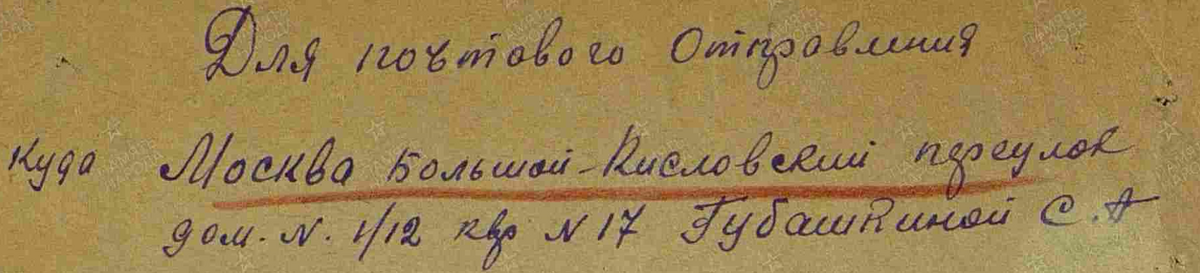 Для почтового Отправления
Куда Москва Большой-Кисловский переулок
дом. N. 1/12 квр N 17 Губашкиной С. А